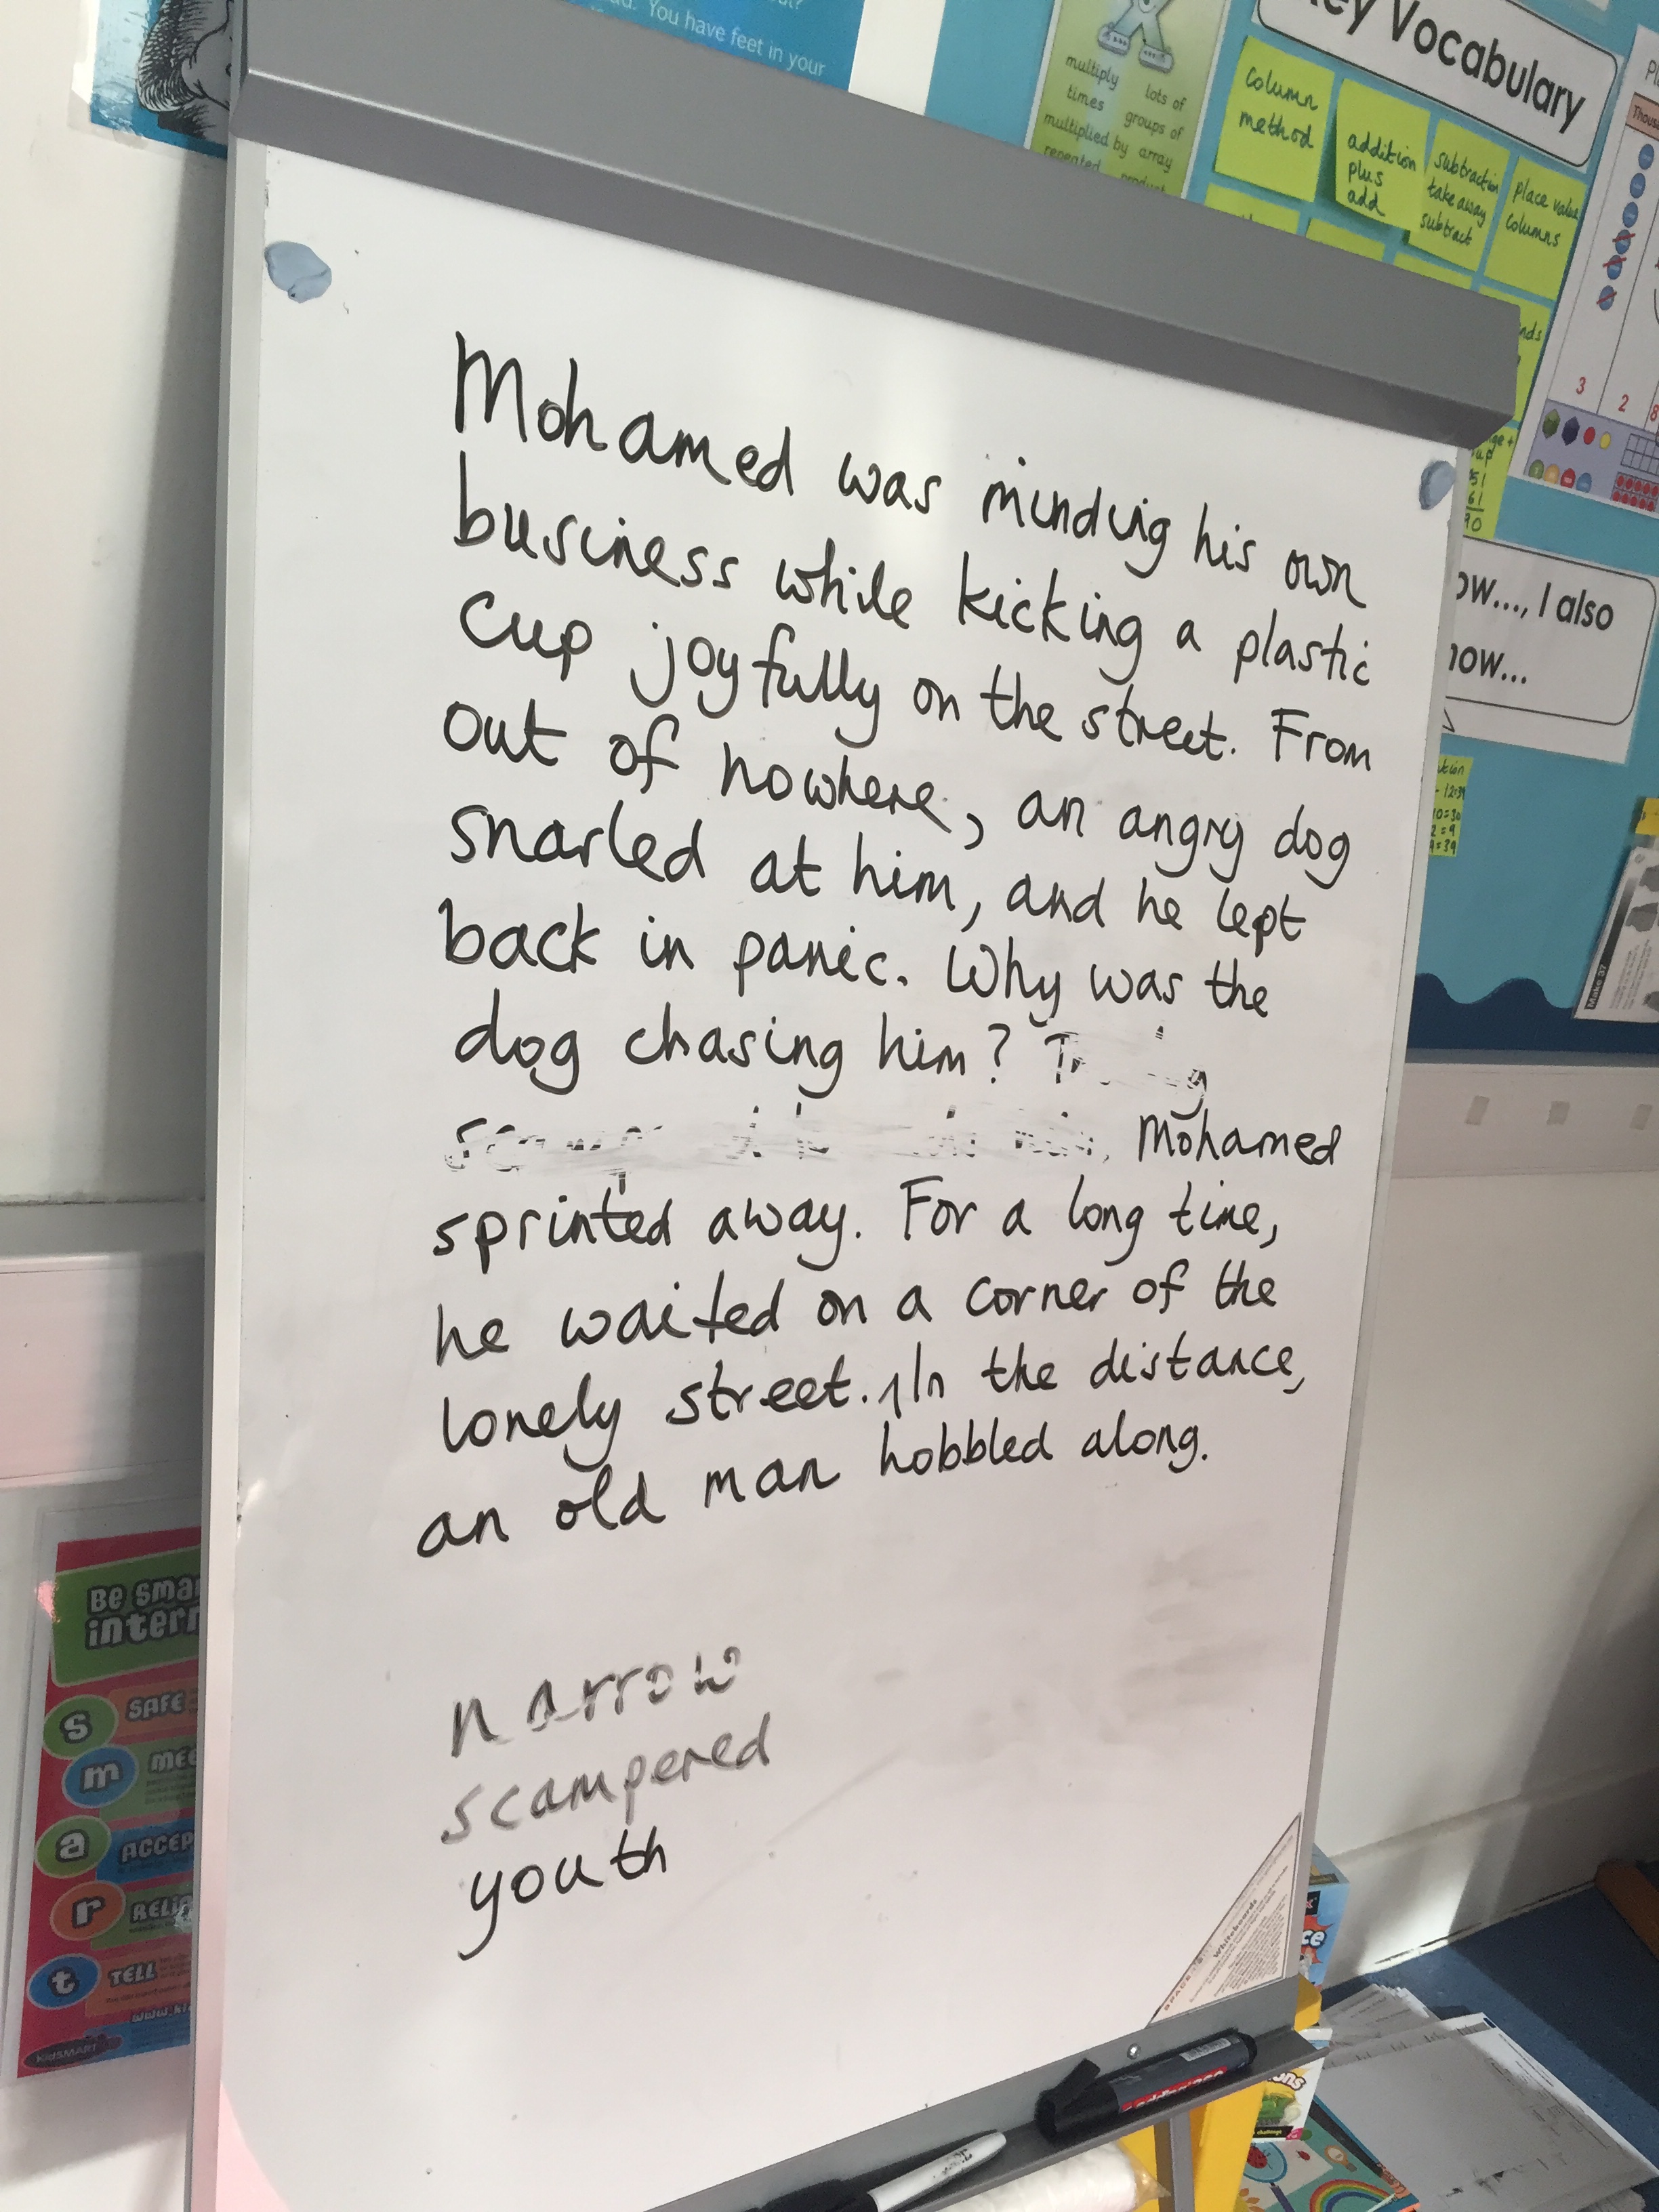 Mohamed was minding his own
business while kicking a plastic
cup joyfully on the street. From
out of nowhere, an angry dog
snarled at him, and he lept
back in panic. Why was the
dog chasing him?
Mohamed
sprinted away. For a long time,
he waited on a corner of the
lonely street. In the distance,
an old man hobbled along.
narrow
scampered
youth
You have feet in your
multiply
times
multiplied by
repeated
lots of
groups of
array
product
Vocabulary
column
method
addition
plus
add
subtraction
take away
subtract
place value
columns
3 2 8
I also
Make 37
SAFE
s
m
a
r
t
TELL
KidSMART
Whiteboards